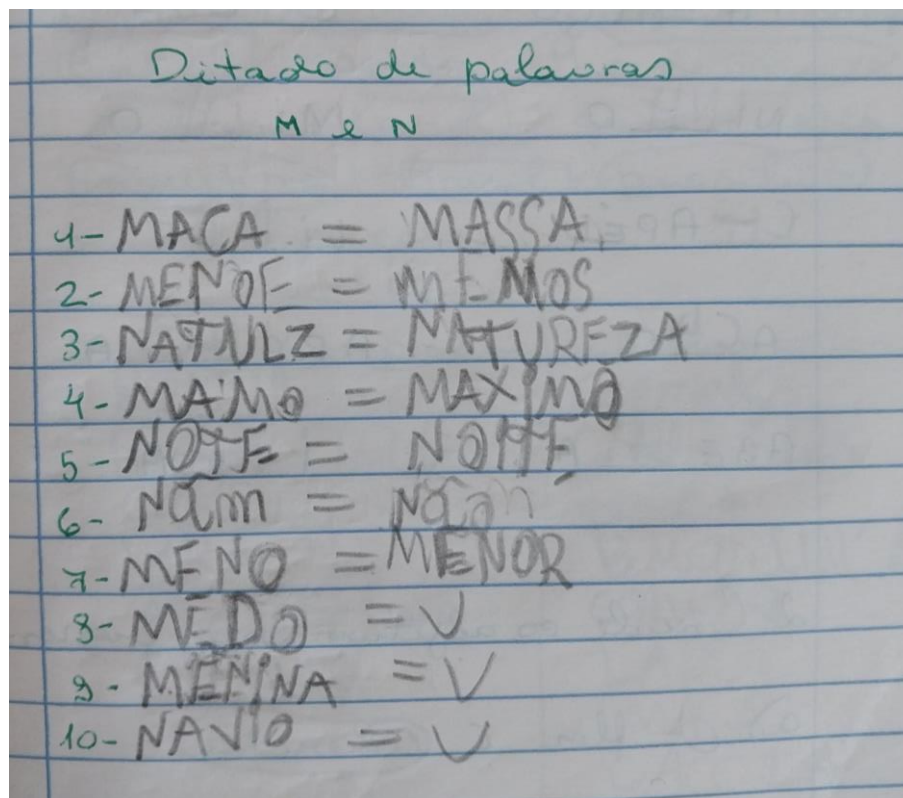 Ditado de palavras
M e N
1- MACA = MASSA
2- MENOE = MEMOS
3- NATULZ = NATUREZA
4- MAIMO = MAXIMO
5- NOTE = NOITE
6- Nãm =
7- MENO = MENOR
8- MEDO = V
9- MENINA = V
10- NAVIO = V